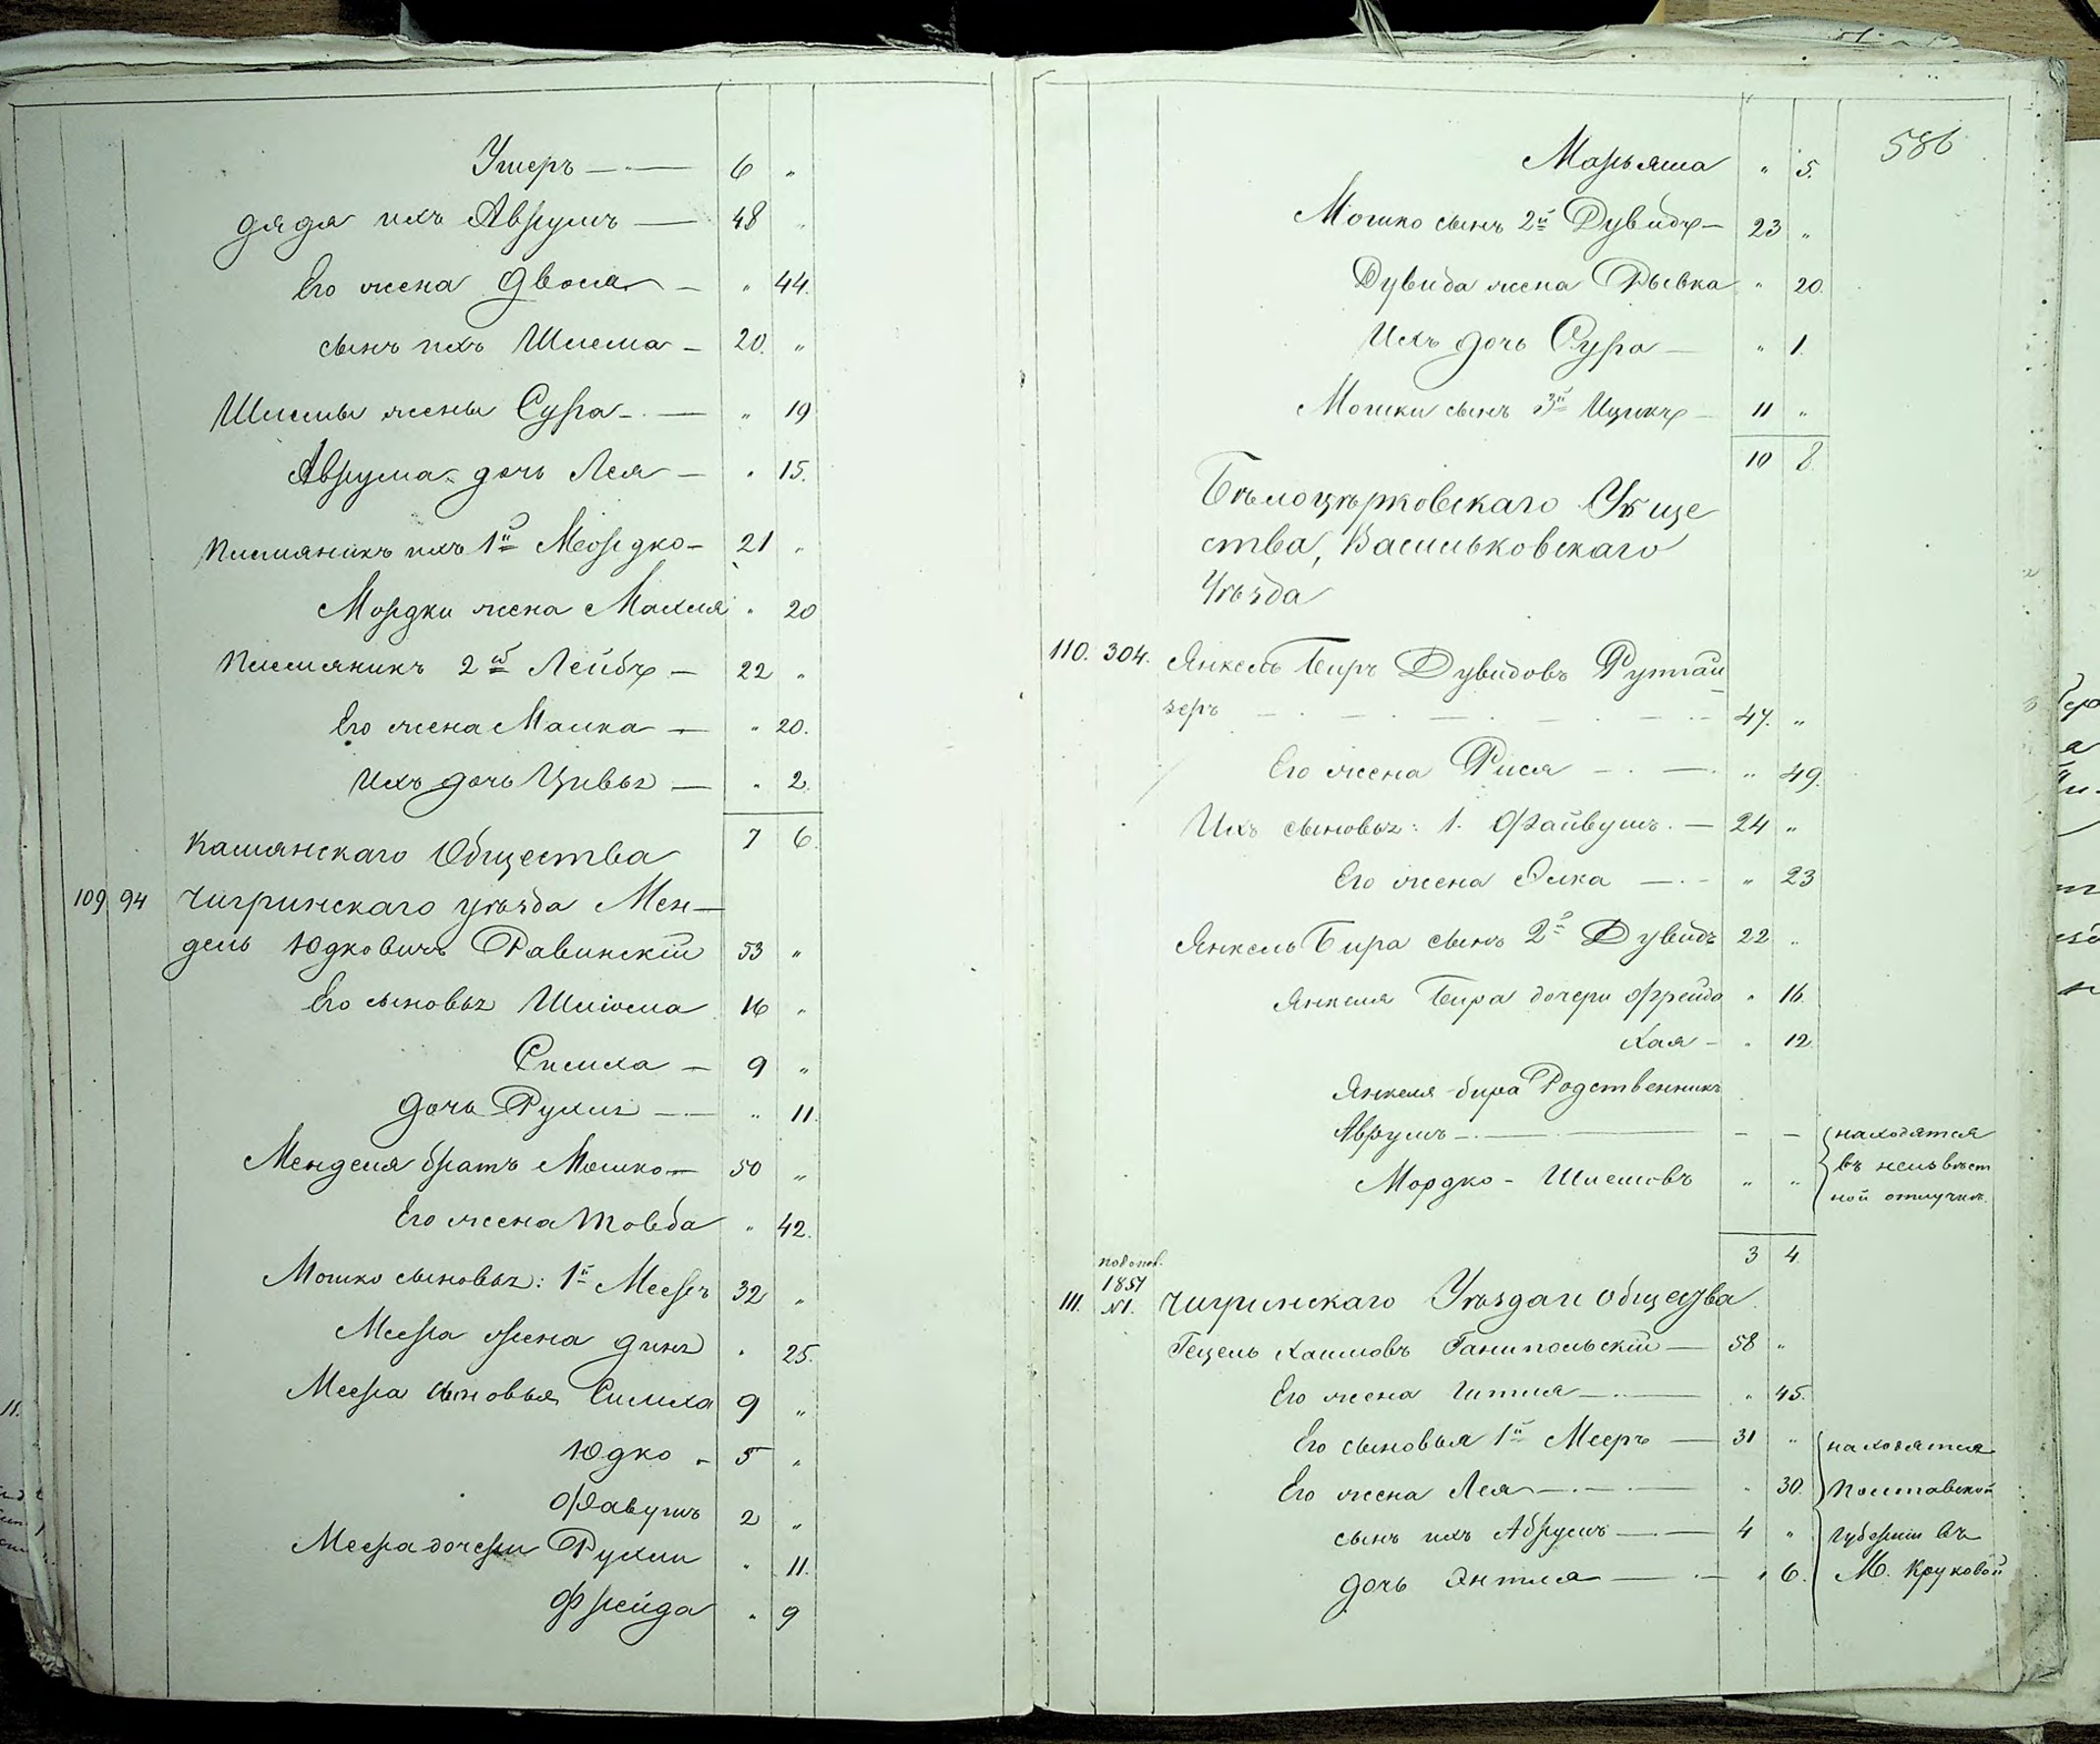 Ушеръ — 6 "
дядя ихъ Аврумъ — 48 "
Его жена Двося — " 44.
сынъ ихъ Шлема — 20. "
Шлемы жена Сура — " 19
Аврума дочь Лея — " 15.
племяникъ ихъ 1й Мордко — 21 "
Мордки жена Махля " 20
Племяникъ 2й Лейбъ — 22 "
Его жена Малка — " 20.
Ихъ дочь Цивья — " 2.
7 6.
Камянскаго Общества
109 94 чигринскаго уѣзда Мен-
дель Юдковичъ Равинскій 53 "
Его сыновья Шлиома 16 "
Симха — 9 "
дочь Рухля — " 11.
Менделя братъ Мошко — 50 "
Его жена Товба " 42.
Мошко сыновья: 1й Мееръ 32 "
Меера жена Дина " 25.
Меера сыновья Симха 9 "
Юдко — 5 "
Фавушъ 2 "
Меера дочери Рухли " 11.
Фрейда " 9
586
Марьяша " 5.
Мошко сынъ 2й Дувидъ — 23 "
Дувида жена Рывка " 20.
Ихъ дочь Сура — " 1.
Мошки сынъ 3й Ицикъ — 11 "
10 8
Бѣлоцѣрковскаго Обще
ства, Васильковскаго
Уѣзда
110. 304. Янкель Биръ Дувидовъ Рутгай
зеръ — 47. "
Его жена Рися — " 49.
Ихъ сыновья: 1. Файвушъ. — 24 "
Его жена Элка — " 23
Янкель Бира сынъ 2й Дувидъ 22 "
Янкеля Бира дочери Фрейда " 16.
Хая — " 12.
Янкеля-бира Родственникъ
Аврумъ — — — находятся
въ неизвѣст
Мордко - Шлемовъ " "
ной отлучкѣ.
3 4.
1851
111. №1. чигринскаго Уѣзда и общества.
Гецель Хаимовъ Ганипольскій — 58 "
Его жена Гитля — " 45.
Его сыновья 1й Мееръ — 31 " находятся
Его жена Лея — " 30. Полтавской
сынъ ихъ Абрумъ — 4 " губерніи въ
дочь Энтля — " 6. М. Круковой